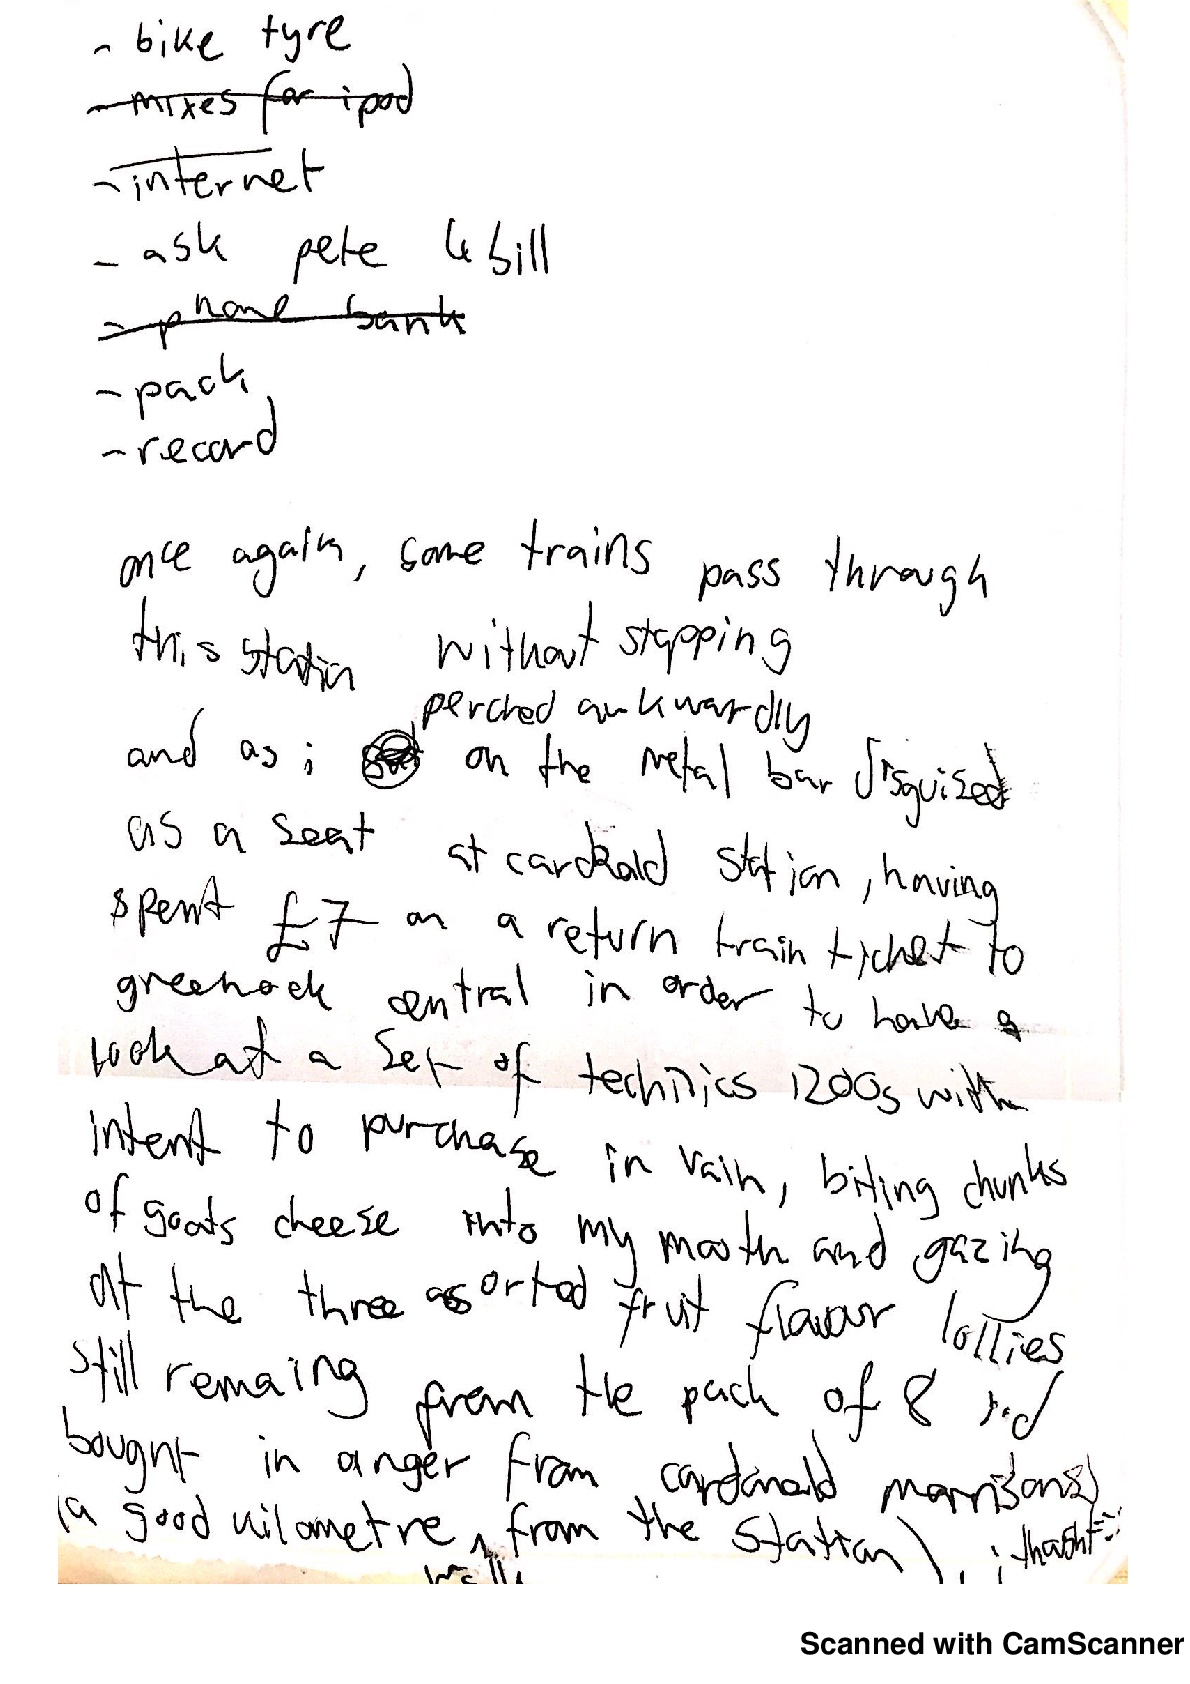 - bike tyre
- mixes for ipod
- internet
- ask pete & bill
- phone bank
- pack
- record
once again, some trains pass through
this station without stopping
perched awkwardly
and as i on the metal bar disguised
as a seat at cardonald station, having
spent £7 on a return train ticket to
greenock central in order to have a
look at a set of technics 1200s with
intent to purchase in vain, biting chunks
of goats cheese into my mouth and gazing
at the three assorted fruit flavour lollies
still remaing from the pack of 8 i'd
bought in anger from cardonald morrisons
(a good kilometre from the station), i thought
walk
Scanned with CamScanner